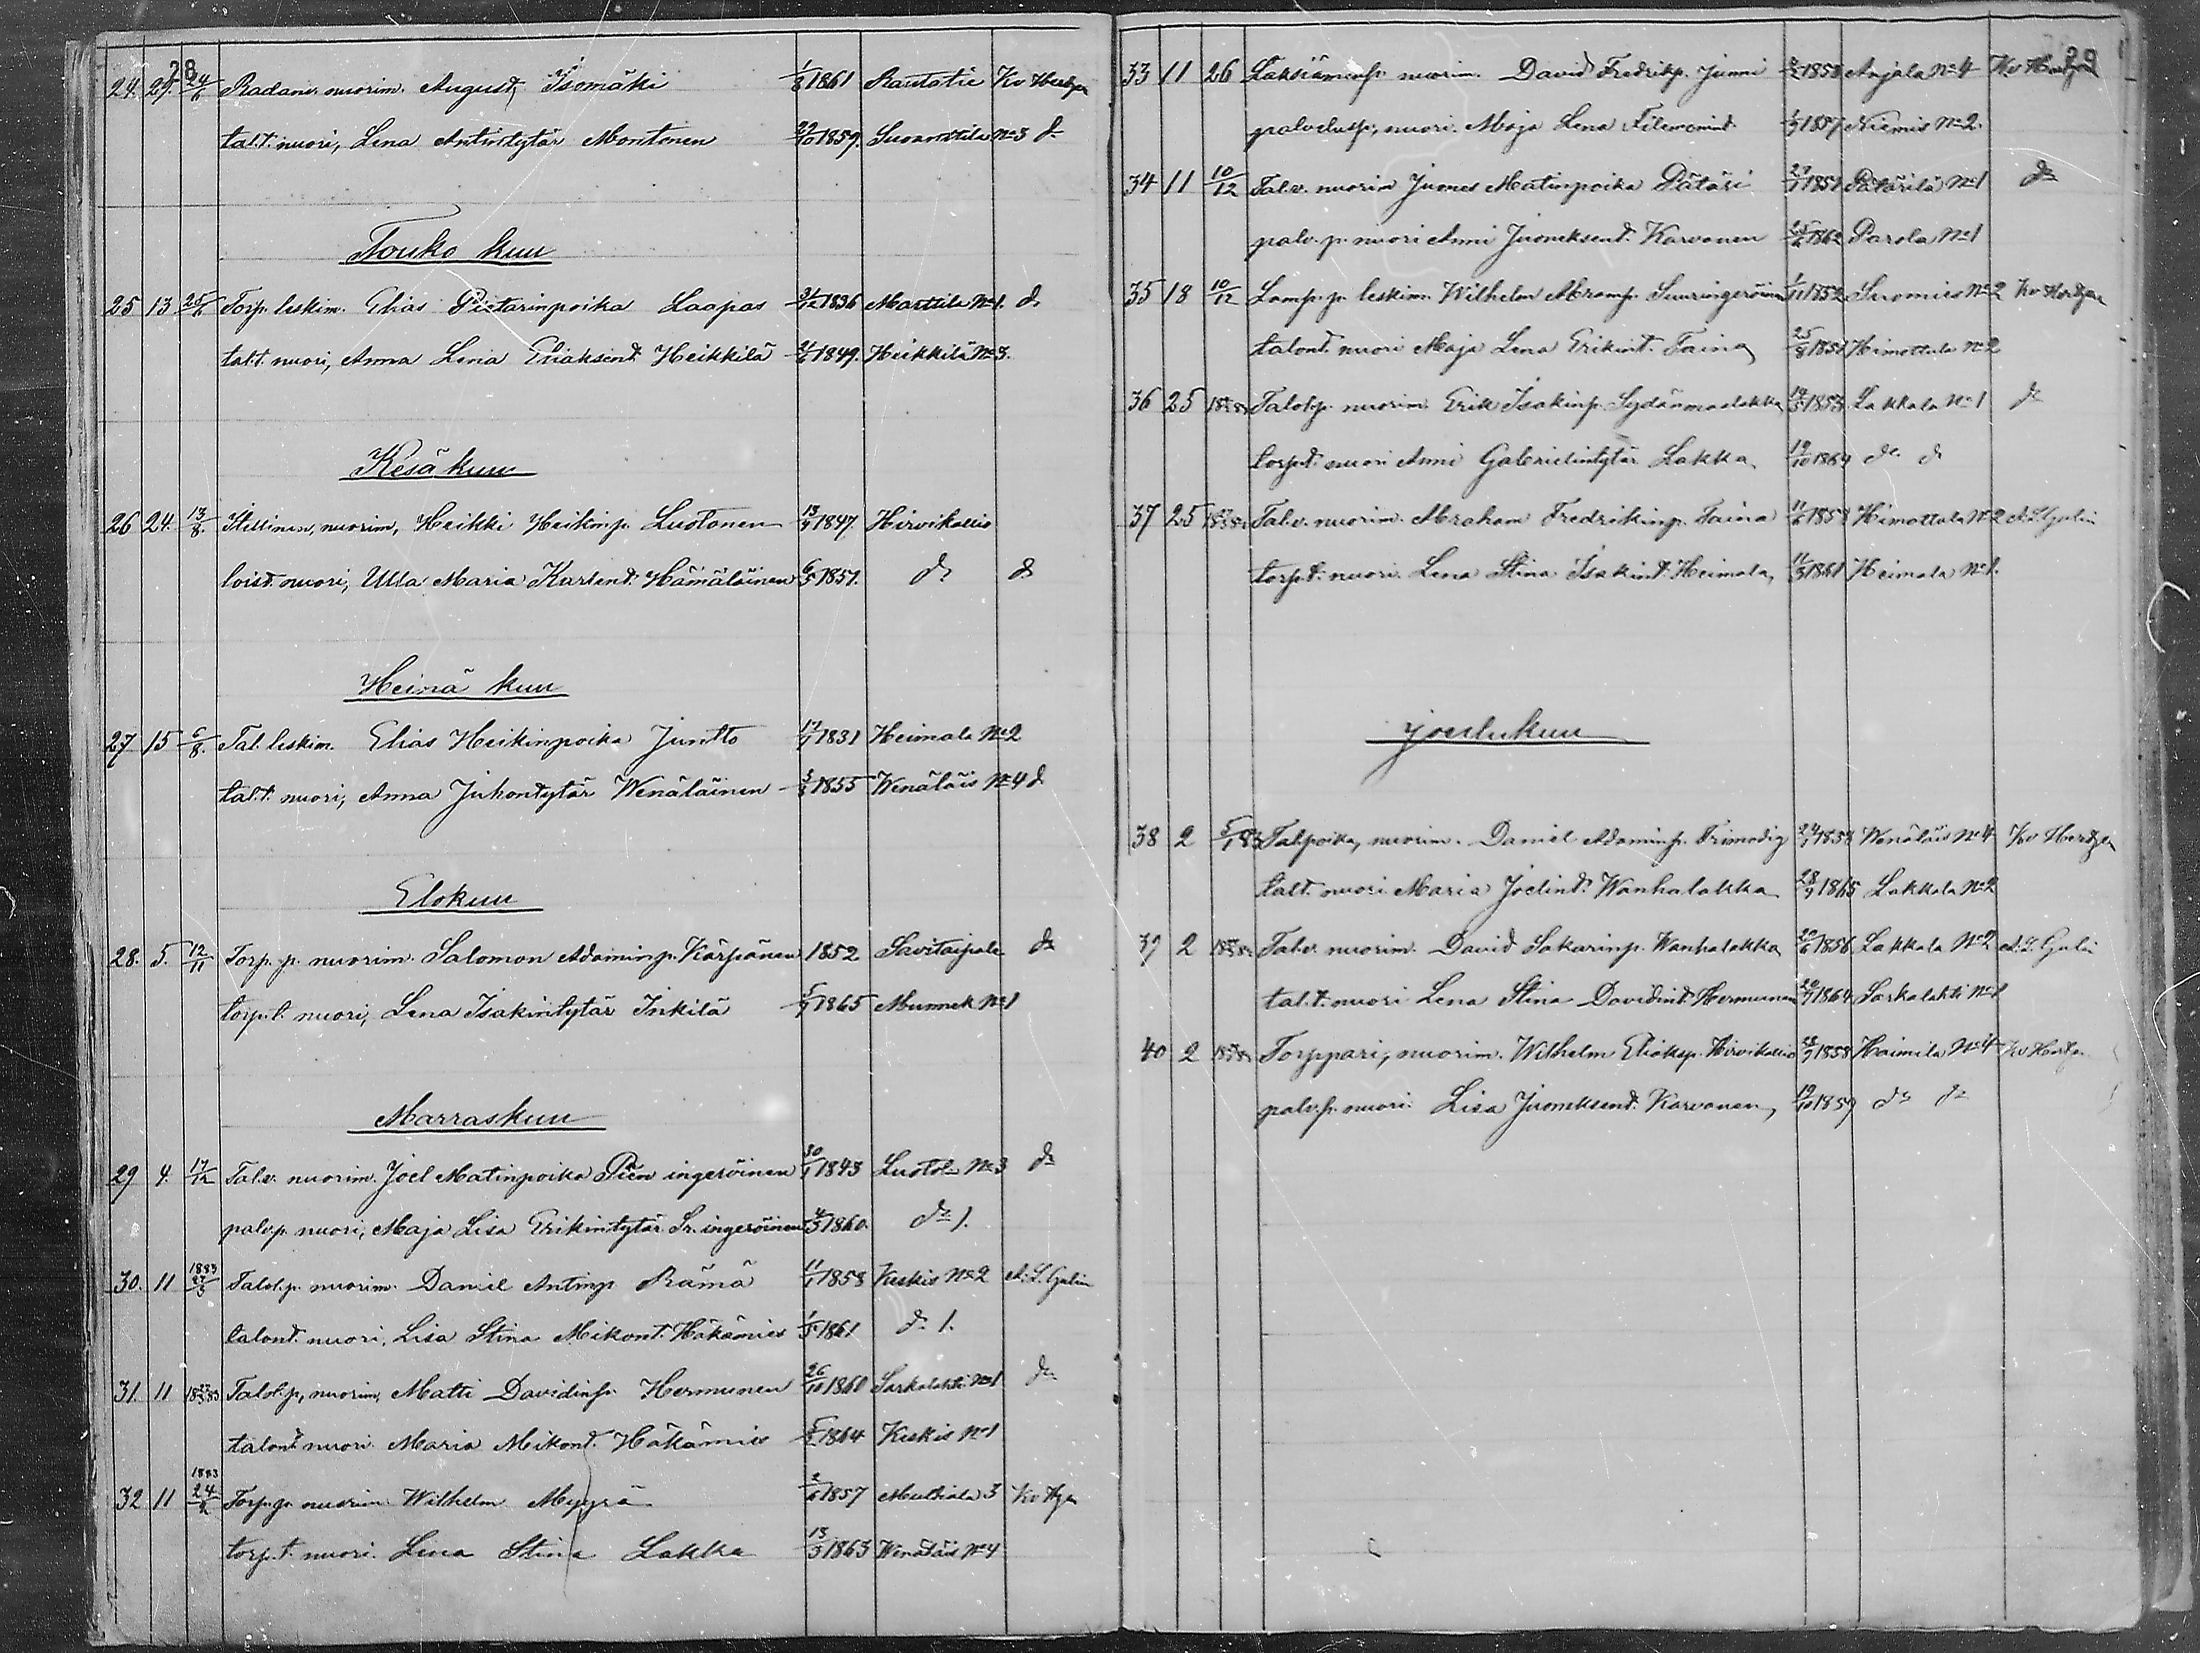 28
24. 29. 24/6 Radanv. nuorim. August Isomäki 1/8 1861 Rautatie Kv Hertzen
tal.t. nuori, Lena Antintytär Montonen 29/10 1859. Suoanttila No 3 do
Touko kuu
25 13 25/6 Torp. leskim. Elias Pietarinpoika Laapas 31/12 1836 Marttila No 1. do
tal.t. nuori, Anna Lena Eliaksent. Heikkilä 1849. Heikkilä No 3.
Kesä kuu
26 24. 13/8. Itellinen, nuorim, Heikki Heikinp. Luotonen 13/9 1847 Hirvikallio
loist. nuori, Ulla Maria Karlend. Hämäläinen 6/5 1857. do do
Heinä kuu
27 15 6/8. Tal. leskim. Elias Heikinpoika Juntto 17/9 1831 Heimala No 2
tal.t. nuori, Anna Juhontytär Wenäläinen 3/8 1855 Wenäläis No 4 do
Elokuu
28. 5. 12/11 Torp. p. nuorim. Salomon Adaminp. Kärpänen 1852 Savitaipale do
torp.t. nuori, Lena Isakintytär Inkilä 5/9 1865 Munnek No 1
Marraskuu
29 4. 17/12 Tal.v. nuorim. Joel Matinpoika Pien ingeröinen 30/1 1843 Luotola No 3 do
palv.p. nuori, Maja Lisa Erikintytär Sr. ingeröinen 4/3 1860. do 1.
30. 11 1883 27/3 Talol.p. nuorim. Daniel Antinp. Rämä 11/1 1858 Keskis No 2 A. L. Gulin
talont. nuori, Lisa Stina Mikont. Häkämies 1/5 1861 do 1.
31. 11 Talol.p, nuorim, Matti Davidinp. Hermunen 26/10 1860 Sarkalahti No 1 do
talont. nuori Maria Mikont. Häkämies 1864 Keskis No 1
32 11 1883 24/2 Torp.p. nuorim Wilhelm Myyrä 2/6 1857 Multiala 3
torp.t. nuori. Lena Stina Lakka 13/3 1863 Wenäläis No 4
29
33 11 26 nuorim. David Fredrikp. Junni 1858 Anjala No 4 Kv Hertzen
palvelusp, nuori. Maja Lena Filemonint. 1857 Niemis No 2.
34 11 10/12 Tal.v. nuorim Juones Matinpoika Pätäri 27/9 1857 Pätärilä No 1 do
palv. p. nuori Anni Juoneksend. Karvonen 1862 Parola No 1
35 18 10/12 Lamp. p. leskim. Wilhelm Abramp. Suuringeröinen 1/11 1852 Suomies No 2 Kv Hertzen
talont. nuori Maja Lena Erikint. Taina 25/8 1851 Himottula No 2
36 25 Talol.p. nuorim. Erik Isakinp. Sydänmaalakka 19/5 1858 Lakkala No 1 do
torp.t. nuori Anni Gabrielintytär Lakka 19/10 1864 do do
37 25 Tal.v. nuorim. Abraham Fredrikinp. Taina 11/6 1858 Himottula No 2 A. L. Gulin
torp.t. nuori. Lena Stina Isakint. Heimala, 11/3 1861 Heimala No 1.
Joulukuu
38 2 5/1 83 Talpoika, nuorim. Daniel Adaminp. Frimodig 1858 Wenäläis No 4 Kv Hertzen
talt. nuori Maria Joelind. Wanhalakka 28/9 1865 Lakkala No 2
39 2 Tal.v. nuorim. David Sakarinp. Wanhalakka 20/6 1856 Lakkala No 2 A. L. Gulin
tal.t. nuori Lena Stina Davidint. Hermunen 1864 Sarkalahti No 1
40 2 Torppari, nuorim. Wilhelm Eliaksp. Hirvikallio 1858 Haimila No 4 Kv Hertzen
palv.p. nuori. Lisa Juoneksend. Karvonen, 19/10 1859 do do